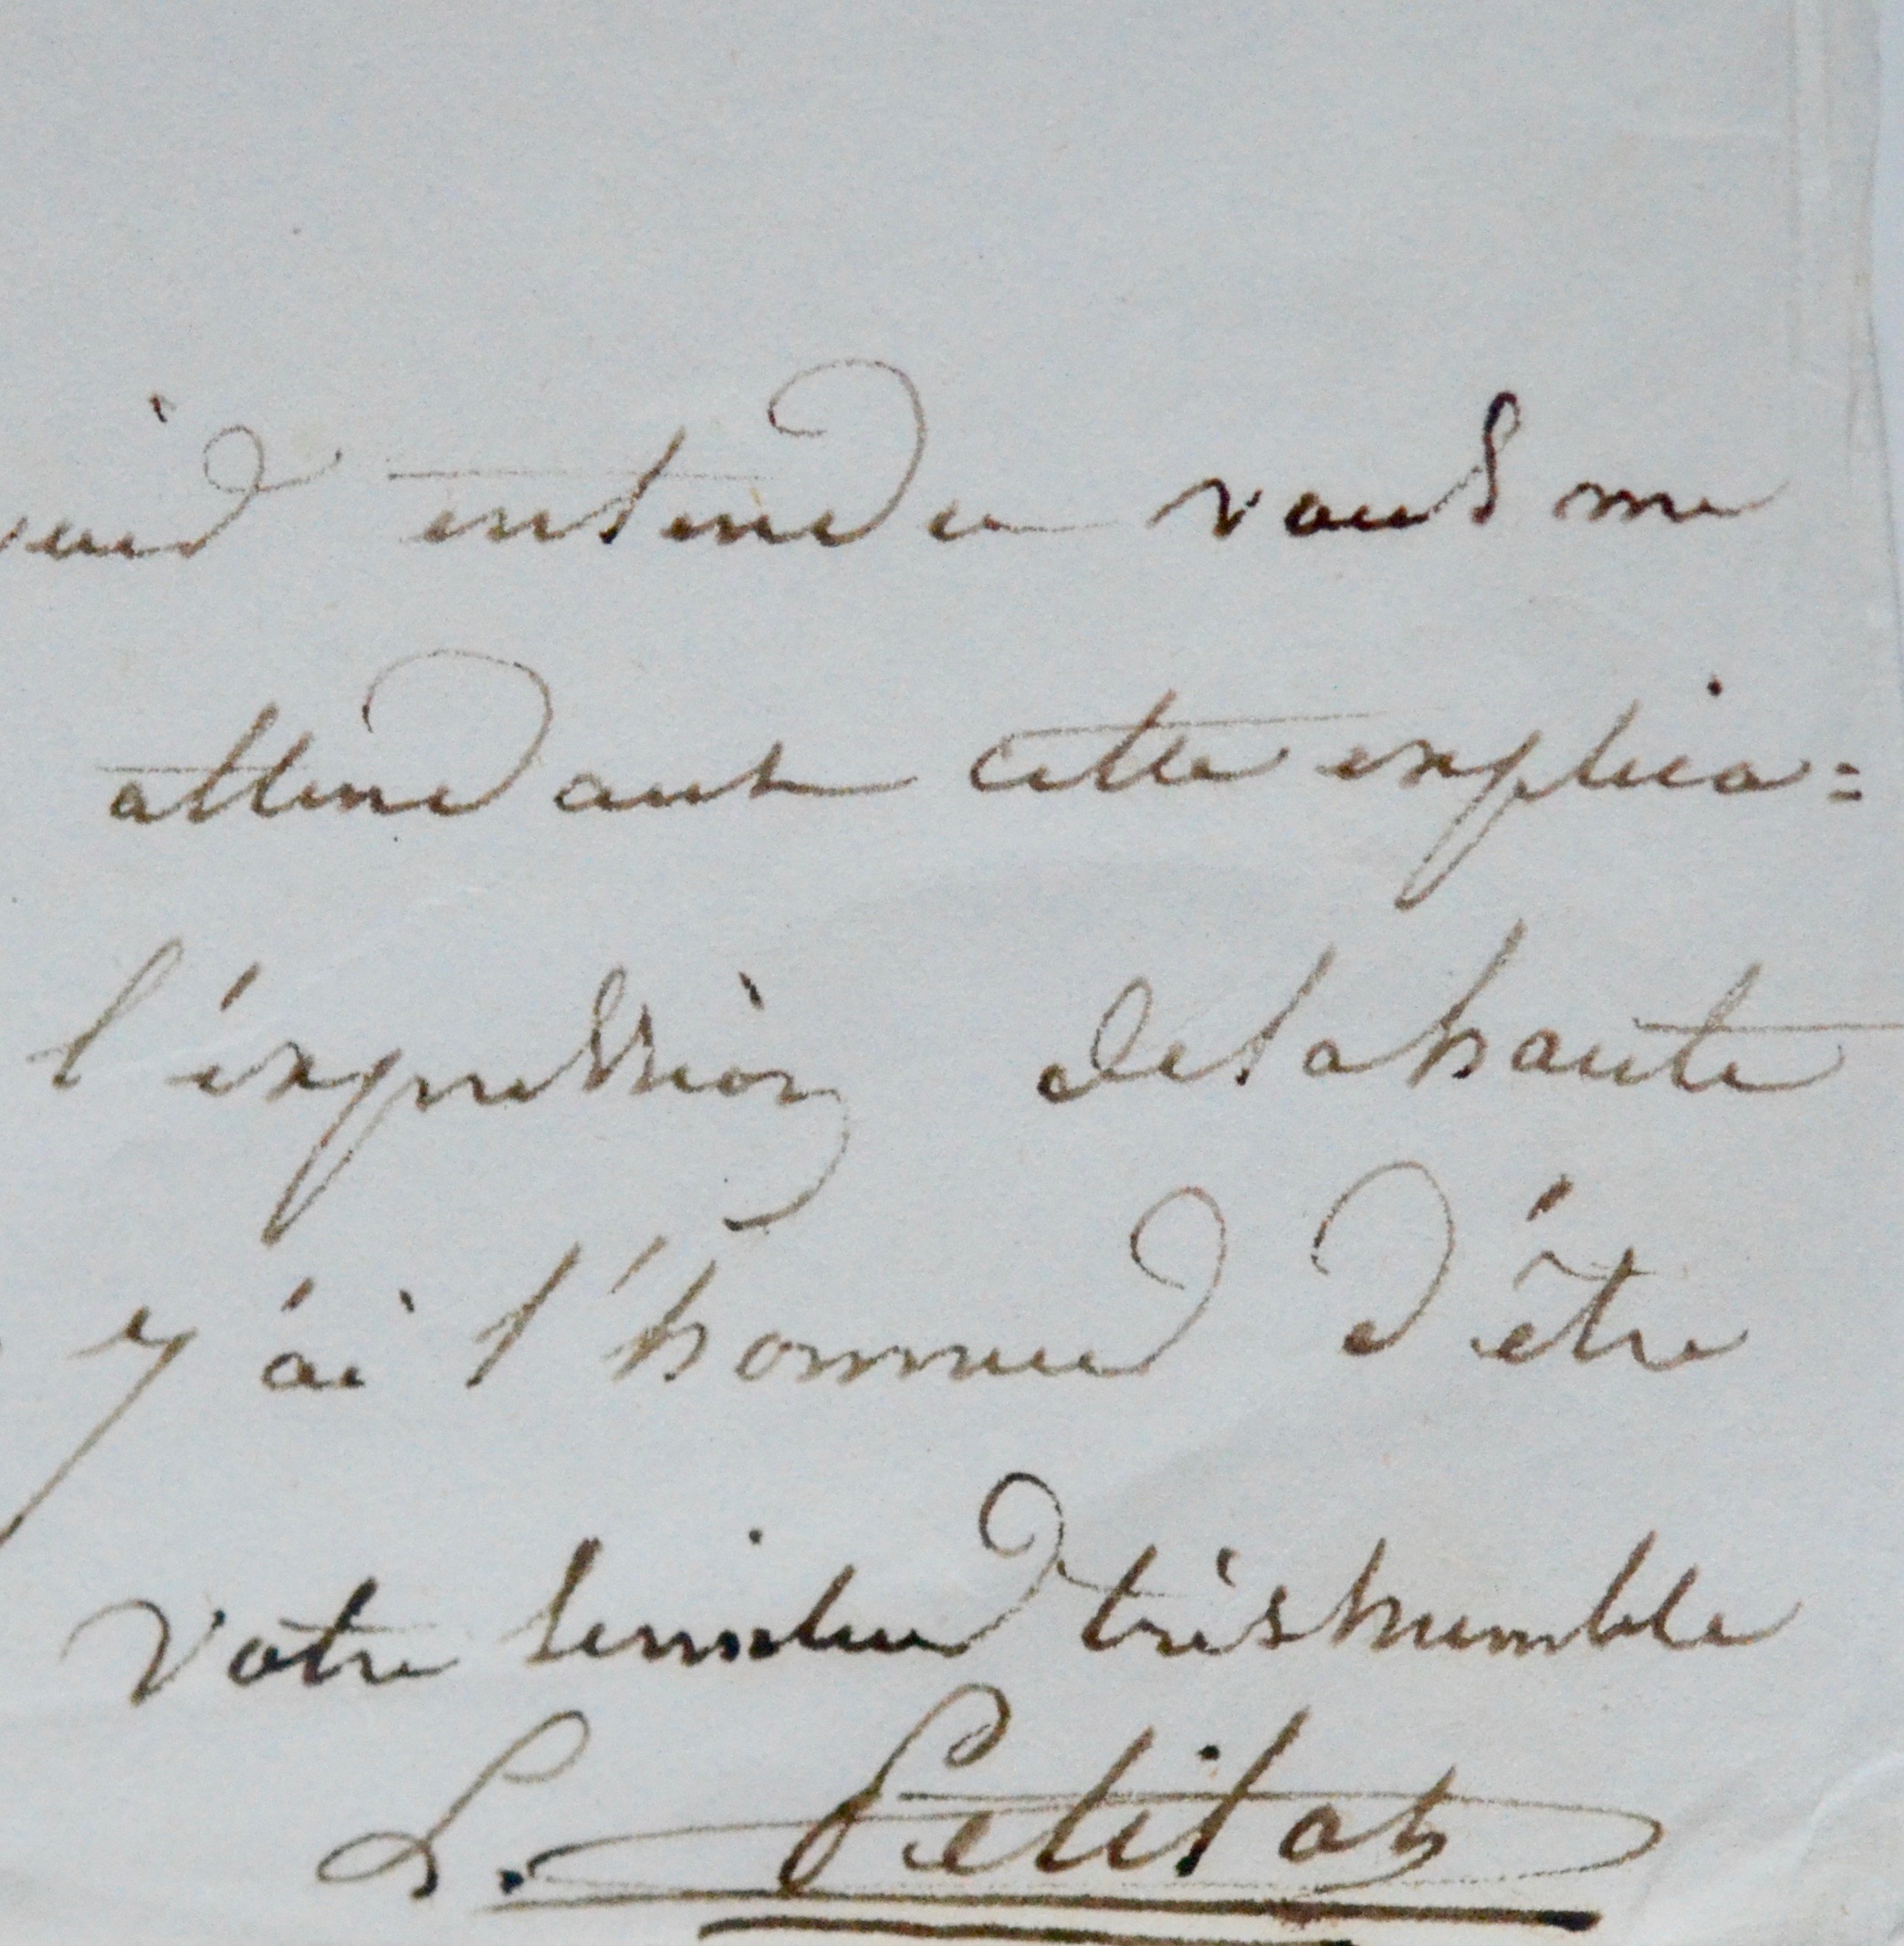 entendu vous me
attendant cette explica=
l'éxpression de la haute
J'ai l'honneur d'être
votre serviteur très humble
L. Petitot